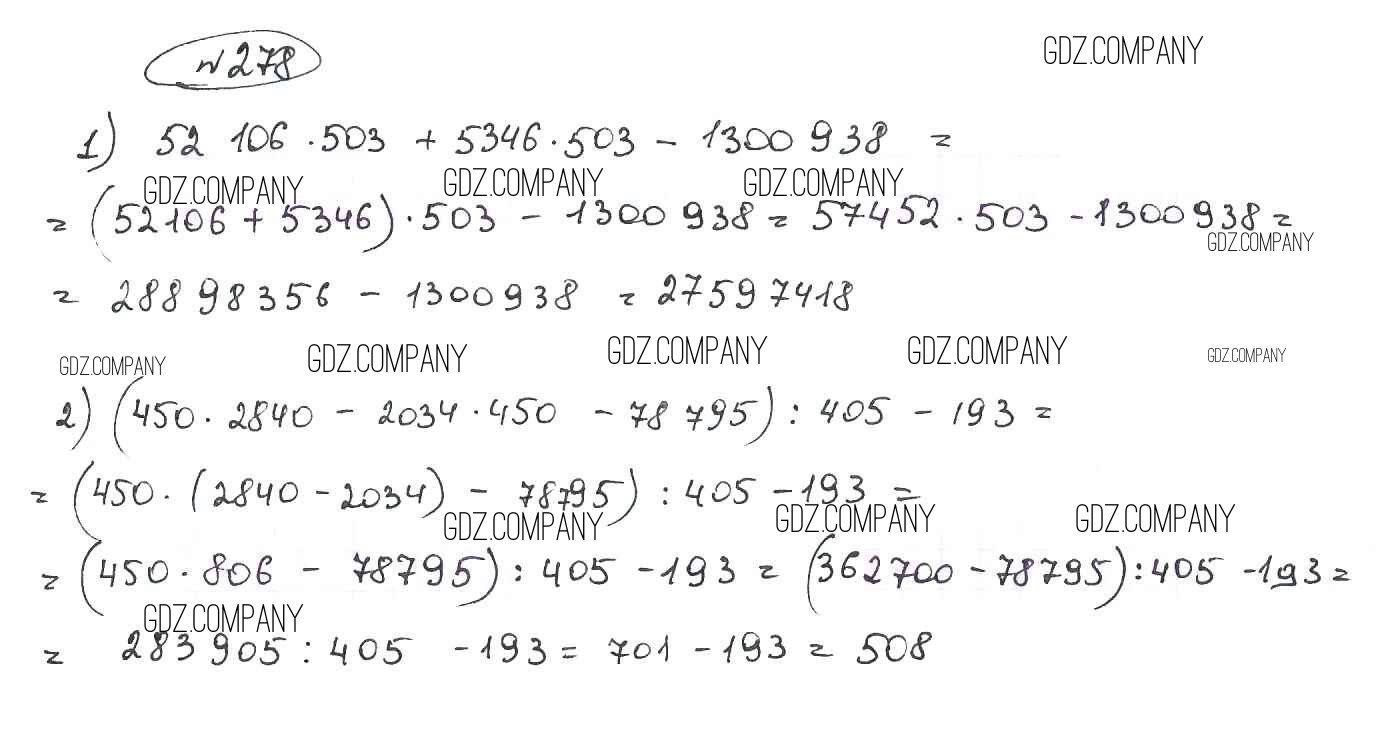 №278
GDZ.COMPANY
1) 52 106 · 503 + 5346 · 503 - 1300 938 =
GDZ.COMPANY GDZ.COMPANY GDZ.COMPANY
= (52106 + 5346) · 503 - 1300 938 = 57452 · 503 - 1300938 =
GDZ.COMPANY
= 28898356 - 1300938 = 27597418
GDZ.COMPANY GDZ.COMPANY GDZ.COMPANY GDZ.COMPANY GDZ.COMPANY
2) (450 · 2840 - 2034 · 450 - 78 795) : 405 - 193 =
= (450 · (2840 - 2034) - 78795) : 405 - 193 =
GDZ.COMPANY GDZ.COMPANY GDZ.COMPANY
= (450 · 806 - 78795) : 405 - 193 = (362700 - 78795) : 405 - 193 =
GDZ.COMPANY
= 283905 : 405 - 193 = 701 - 193 = 508